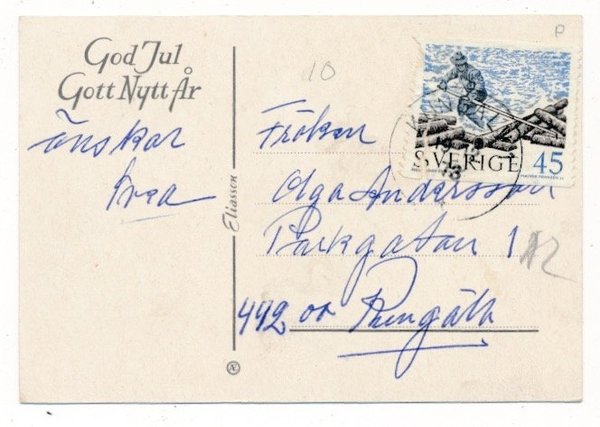 God Jul
Gott Nytt År
önskar
Svea
Eliasson
P
10
SVERIGE 45
Fröken
Olga Andersson
Parkgatan 1
442 00 Kungälv